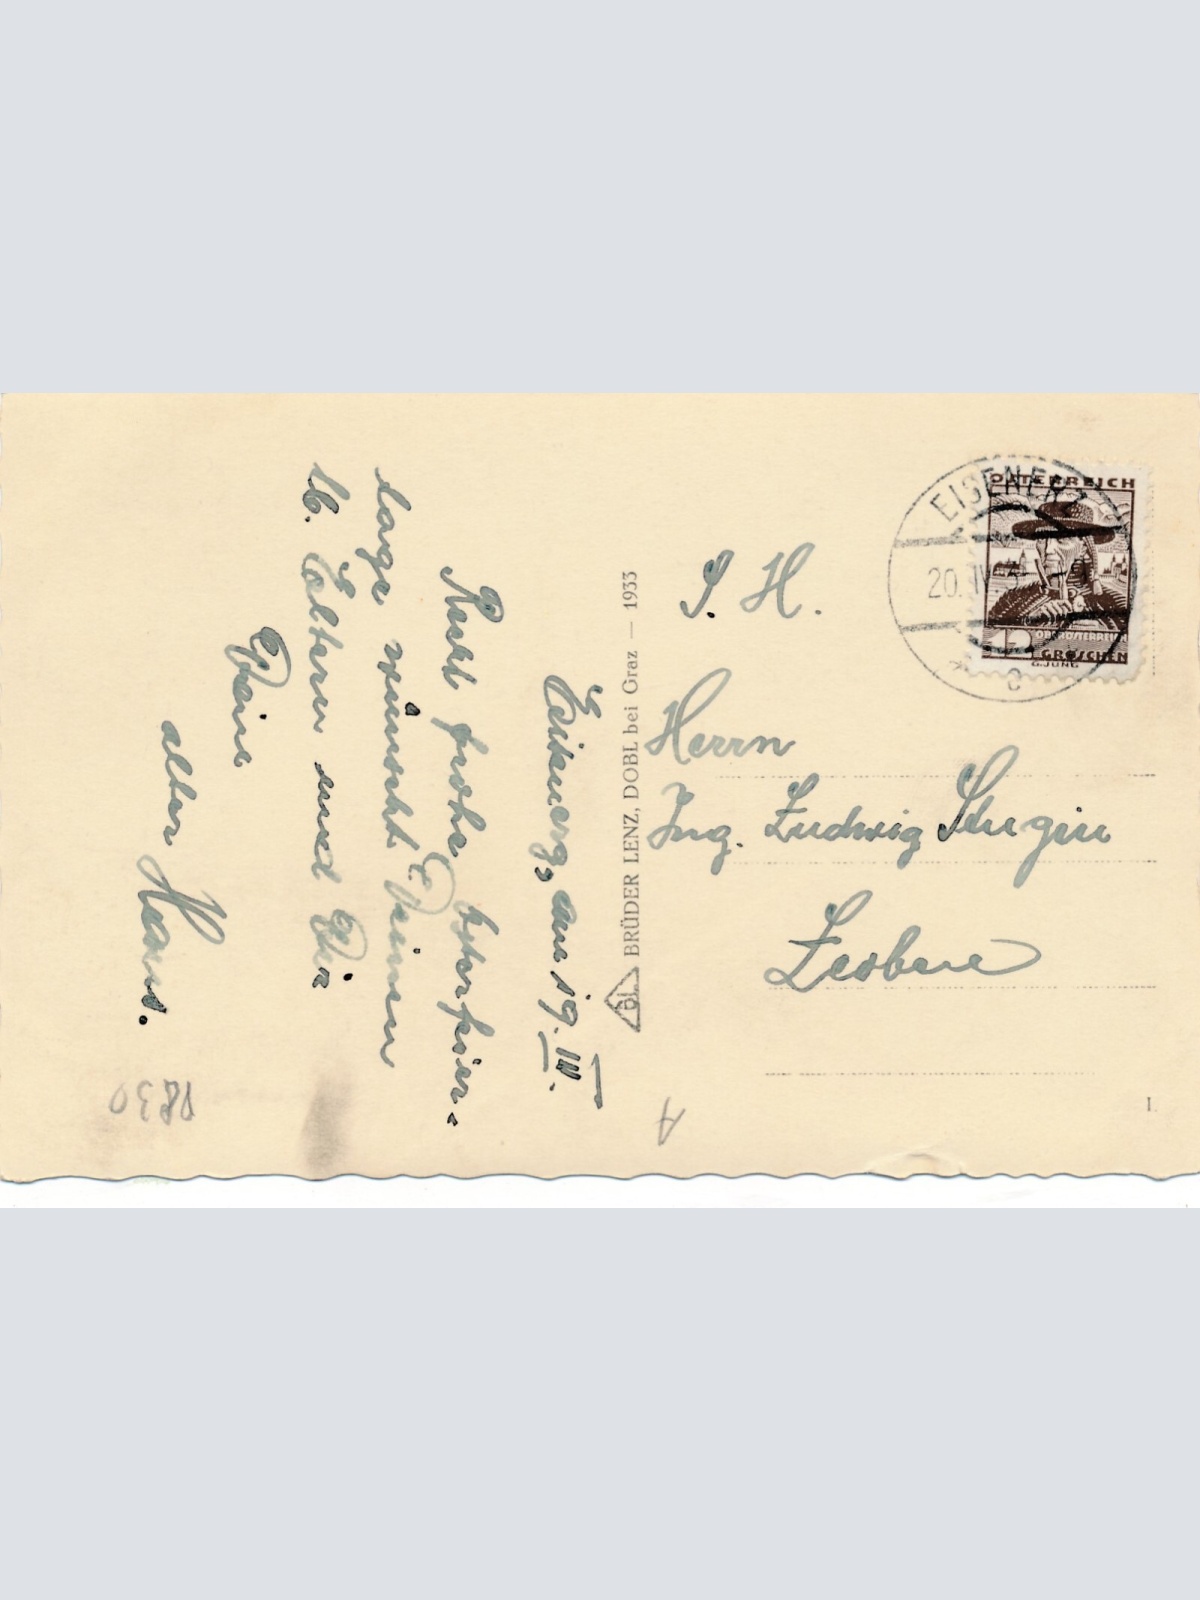 am 19. IV.
Recht frohe Osterfeier-
tage wünscht Deinen
lb. Eltern und Dir
Dein
alter Hans.
BRÜDER LENZ, DOBL bei Graz — 1933
bl
S. H.
Herrn
Ing. Ludwig
Leoben
ÖSTERREICH
12
OBERÖSTERREICH
GROSCHEN
G. JUNG
EISENERZ
20. IV.
c
A
1.